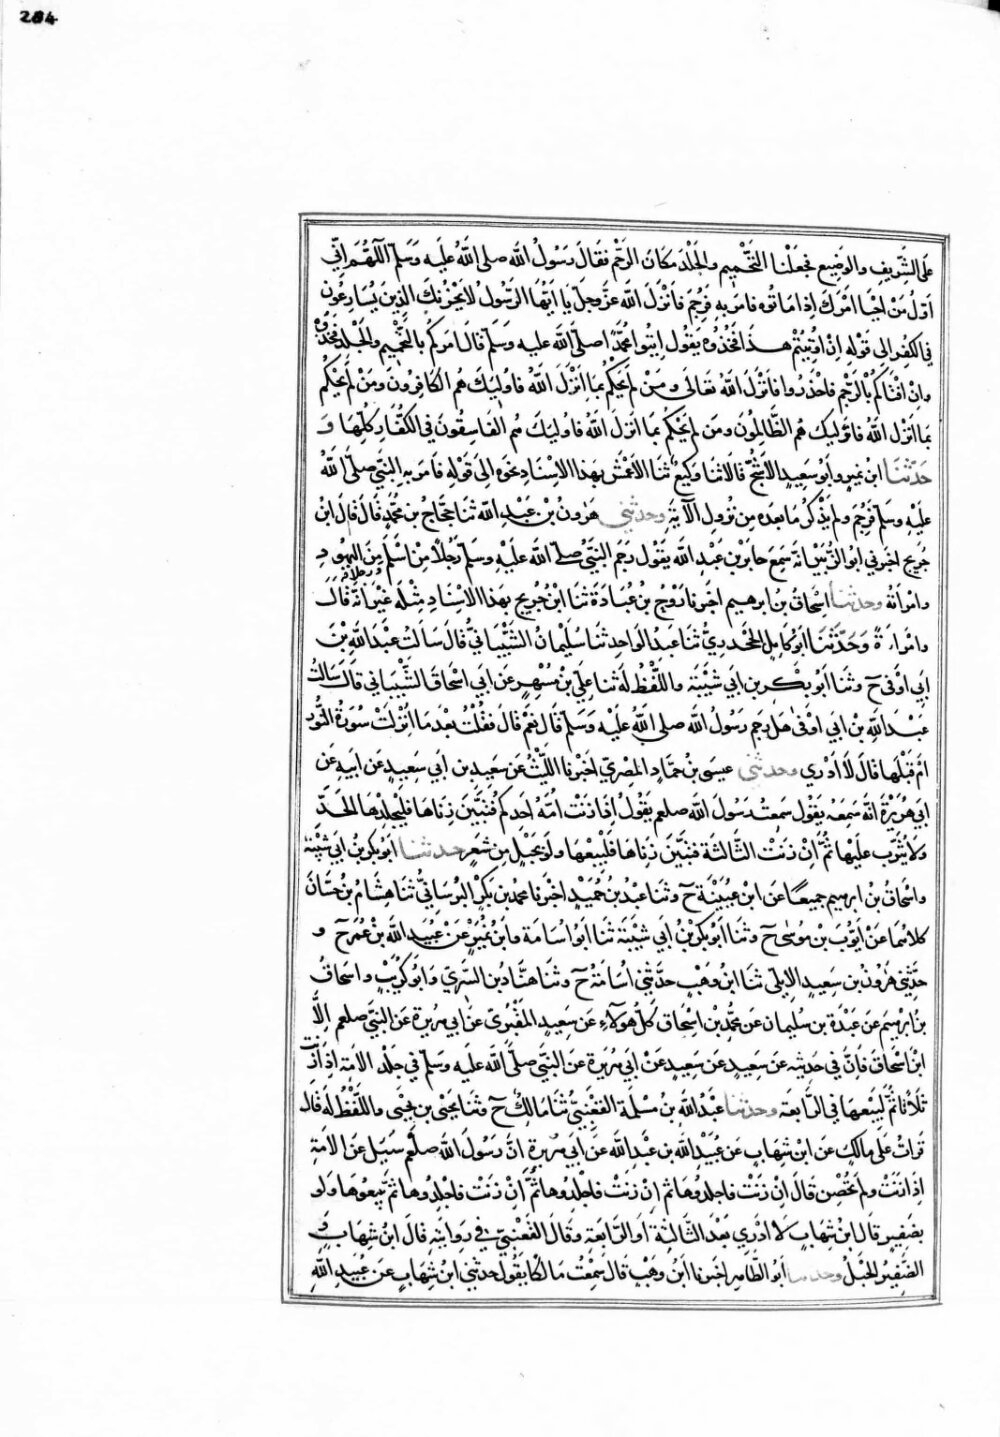 284
على الشريف والوضيع فجعلنا التحميم والجلد مكان الرجم فقال رسول الله صلى الله عليه وسلم اللهم اني
اول من احيا امرك اذ اماتوه فامر به فرجم فانزل الله عز وجل يا ايها الرسول لا يحزنك الذين يسارعون
في الكفر الى قوله ان اوتيتم هذا فخذوه يقول ايتوا محمدا صلى الله عليه وسلم قال امركم بالتحميم والجلد فخذوه
وان افتاكم بالرجم فاحذروا فانزل الله تعالى ومن لم يحكم بما انزل الله فاوليك هم الكافرون ومن لم يحكم
بما انزل الله فاوليك هم الظالمون ومن لم يحكم بما انزل الله فاوليك هم الفاسقون في الكفار كلها و
حدثنا ابن نمير وابو سعيد الاشج قالا ثنا وكيع ثنا الاعمش بهذا الاسناد نحوه الى قوله فامر به النبي صلى الله
عليه وسلم فرجم ولم يذكر ما بعده من نزول الآية وحدثني هرون بن عبد الله ثنا حجاج بن محمد قال قال ابن
جريج اخبرني ابو الزبير انه سمع جابر بن عبد الله يقول رجم النبي صلى الله عليه وسلم رجلا من اسلم ورجلا من اليهود
وامراته وحدثنا اسحاق بن ابرهيم اخبرنا روح بن عبادة ثنا ابن جريج بهذا الاسناد مثله غير انه قال
وامراة وحدثنا ابو كامل الجحدري ثنا عبد الواحد ثنا سليمان الشيباني قال سالت عبد الله بن
ابي اوفى ح وثنا ابو بكر بن ابي شيبة واللفظ له ثنا علي بن مسهر عن ابي اسحاق الشيباني قال سالت
عبد الله بن ابي اوفى هل رجم رسول الله صلى الله عليه وسلم قال نعم قال فقلت بعد ما انزلت سورة النور
ام قبلها قال لا ادري وحدثني عيسى بن حماد المصري اخبرنا الليث عن سعيد بن ابي سعيد عن ابيه عن
ابي هريرة انه سمعه يقول سمعت رسول الله صلعم يقول اذا زنت امة احدكم فتبين زناها فليجلدها الحد
ولا يثرب عليها ثم ان زنت الثالثة فتبين زناها فليبعها ولو بحبل من شعر حدثنا ابو بكر بن ابي شيبة
واسحاق بن ابرهيم جميعا عن ابن عيينة ح وثنا عبد بن حميد اخبرنا محمد بن بكر البرساني ثنا هشام بن حسان
كلاهما عن ايوب بن موسى ح وثنا ابو بكر بن ابي شيبة ثنا ابو اسامة وابن نمير عن عبيد الله بن عمر ح و
حدثني هرون بن سعيد الايلي ثنا ابن وهب حدثني اسامة ح وثنا هناد بن السري وابو كريب واسحاق
بن ابرهيم عن عبدة بن سليمان عن محمد بن اسحاق كل هولاء عن سعيد المقبري عن ابي هريرة عن النبي صلعم الا
ابن اسحاق فان في حديثه عن سعيد عن سعيد عن ابي هريرة عن النبي صلى الله عليه وسلم في جلد الامة اذ ازنت
ثلاثا ثم ليبعها في الرابعة وحدثنا عبد الله بن مسلمة القعنبي ثنا مالك ح وثنا يحيى بن يحيى واللفظ له قال
قرات على مالك عن ابن شهاب عن عبيد الله بن عبد الله عن ابي هريرة ان رسول الله صلعم سيل عن الامة
اذا زنت ولم تحصن قال ان زنت فاجلدوها ثم ان زنت فاجلدوها ثم ان زنت فاجلدوها ثم بيعوها ولو
بضفير قال ابن شهاب لا ادري بعد الثالثة او الرابعة وقال القعنبي في روايته قال ابن شهاب و
الضفير الحبل وحدثنا ابو الطاهر اخبرنا ابن وهب قال سمعت مالكا يقول حدثني ابن شهاب عن عبيد الله